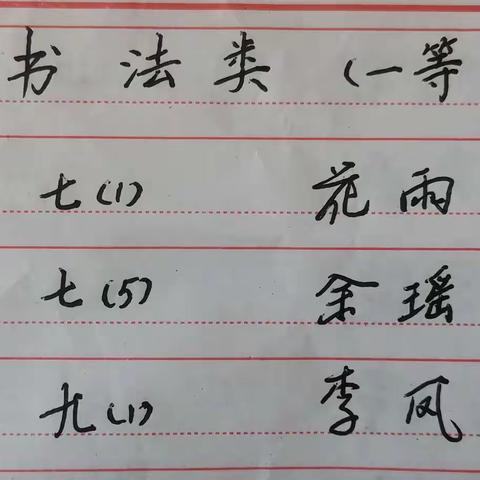 书法类（一等
七(1) 花雨
七(5) 余瑶
九(1) 李凤